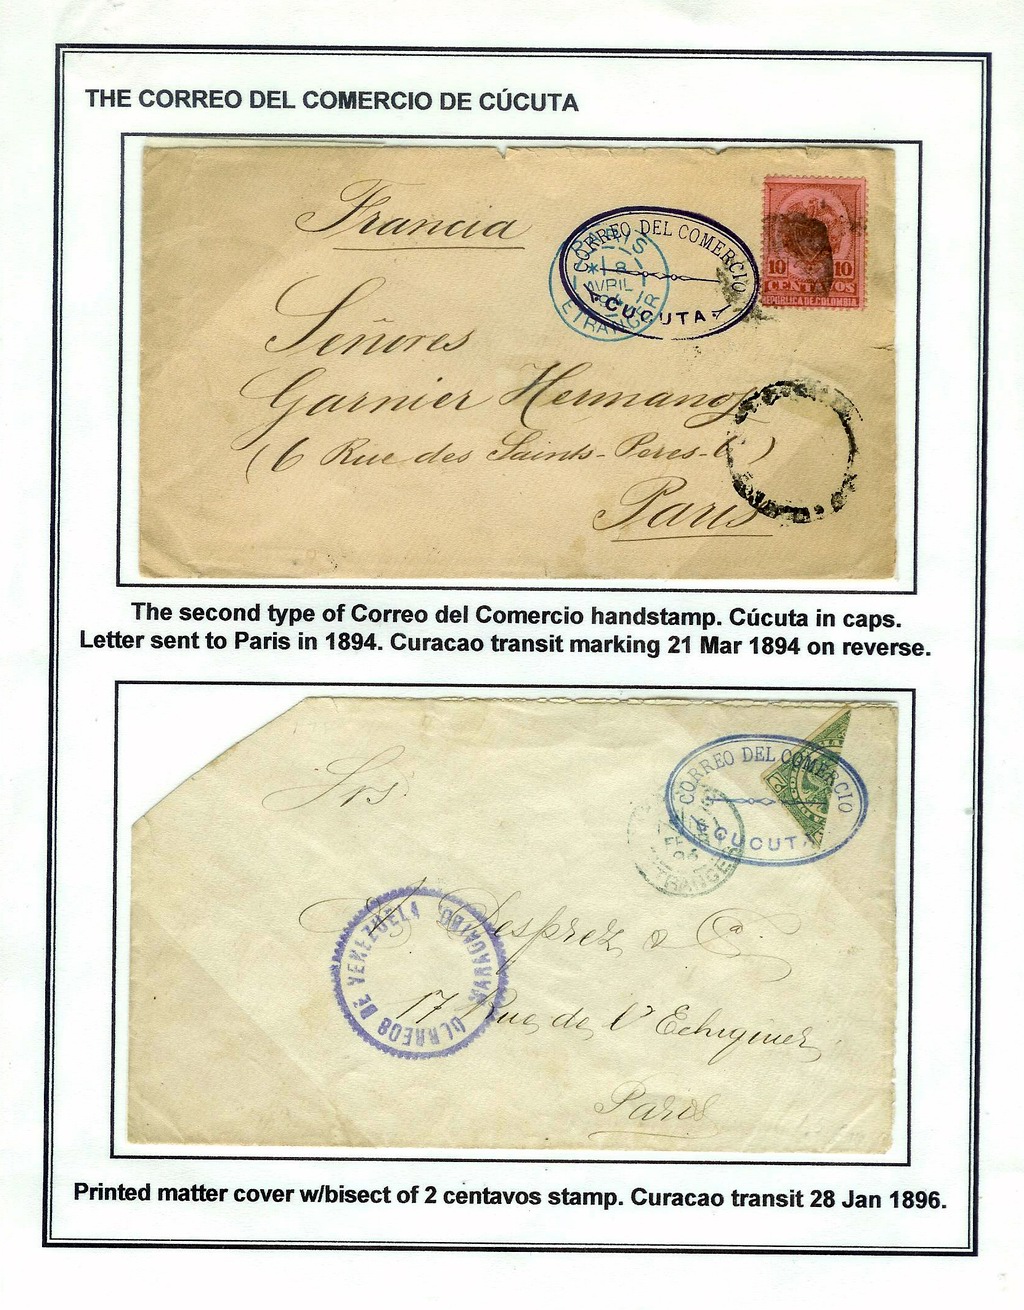 THE CORREO DEL COMERCIO DE CÚCUTA
Francia
CORREO DEL COMERCIO
CUCUTA
PARIS
8
AVRIL
94
ETRANGER
10 10
CENTAVOS
REPUBLICA DE COLOMBIA
Señores
Garnier Hermanos
(6 Rue des Saints-Peres-6)
Paris
The second type of Correo del Comercio handstamp. Cúcuta in caps.
Letter sent to Paris in 1894. Curacao transit marking 21 Mar 1894 on reverse.
CORREO DEL COMERCIO
CUCUTA
ETRANGER
Srs
Desprez & Ca.
CORREOS DE VENEZUELA
MARACAIBO
17 Rue de l'Echiquier
Paris
Printed matter cover w/bisect of 2 centavos stamp. Curacao transit 28 Jan 1896.